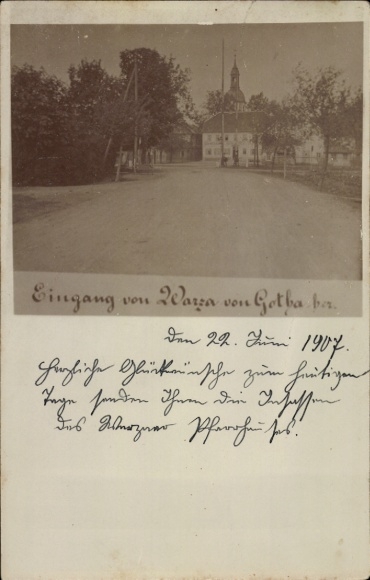 Eingang von Warza von Gotha her.
Den 22. Juni 1907.
Herzliche Glückwünsche zum heutigen
Tage senden Ihnen die Insassen
des Warzaer Pfarrhauses.